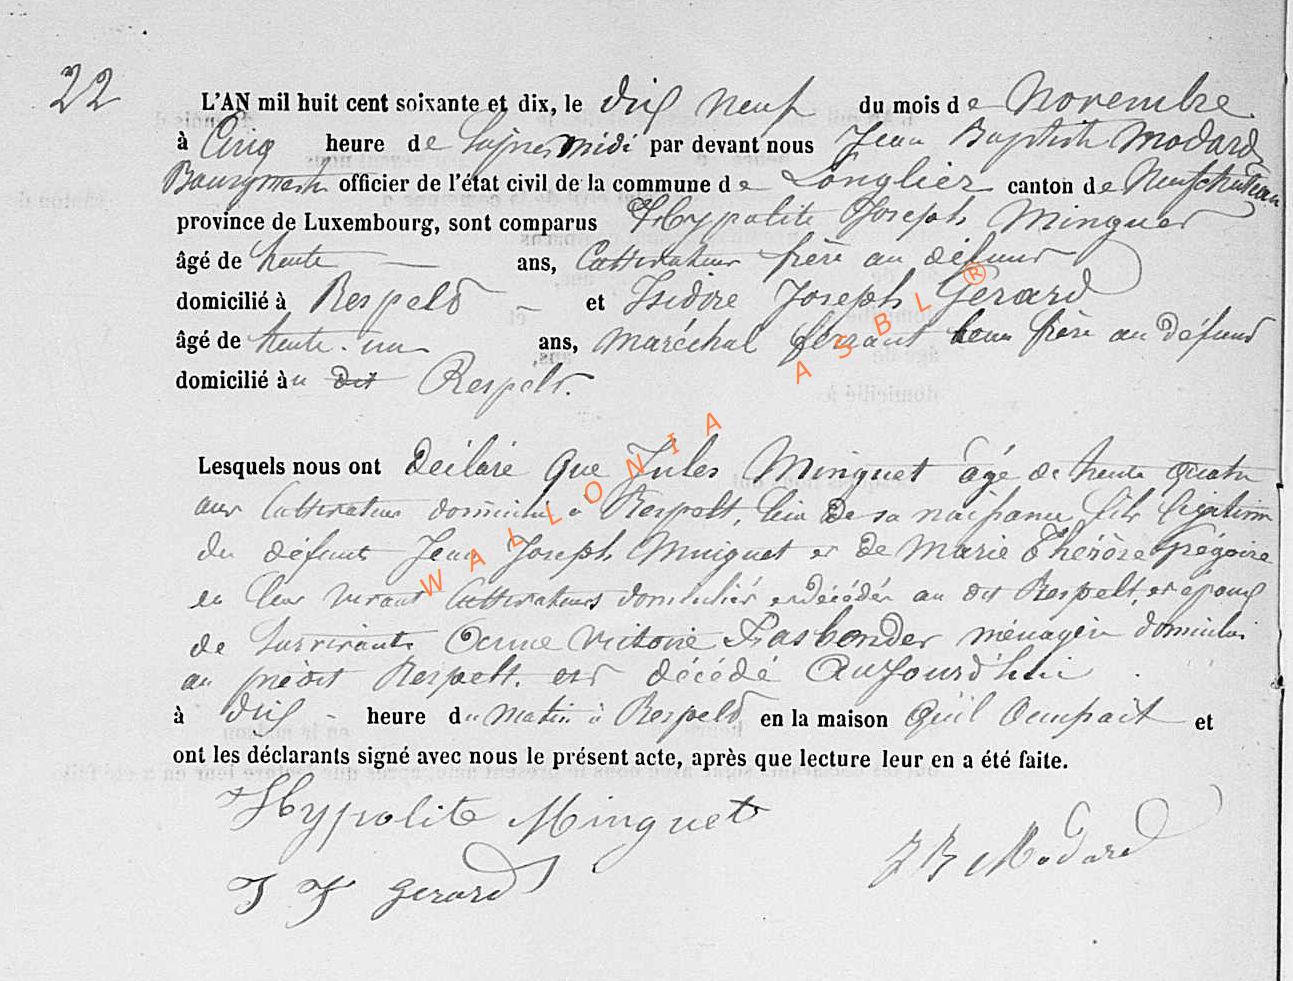 22
L'AN mil huit cent soixante et dix, le dix neuf du mois de Novembre
à Cinq heure de l'après midi par devant nous Jean Baptiste Modard
Bourgmestre officier de l'état civil de la commune de Longlier canton de Neufchateau
province de Luxembourg, sont comparus Hyppolite Joseph Minguet
âgé de trente ans, Cultivateur frère au défunt
domicilié à Respelt et Isidore Joseph Gerard
âgé de trente-un ans, maréchal ferrant beau frère au défunt
domicilié àu dit Respelt.
Lesquels nous ont déclaré que Jules Minguet âgé de trente quatre
ans Cultivateur domicilié à Respelt, lieu de sa naissance, fils légitime
du défunt Jean Joseph Minguet et de Marie Thérèse Grégoire
en leur vivant Cultivateurs domiciliés et décédés au dit Respelt, et epoux
de survivante Victoire Fasbender ménagère domiciliée
au prédit Respelt. est décédé Aujourd'hui
à dix heure du matin à Respelt en la maison qu'il occupait et
ont les déclarants signé avec nous le présent acte, après que lecture leur en a été faite.
Hyppolite Minguet
J B Modard
I J Gerard
WALLONIA ASBL ®